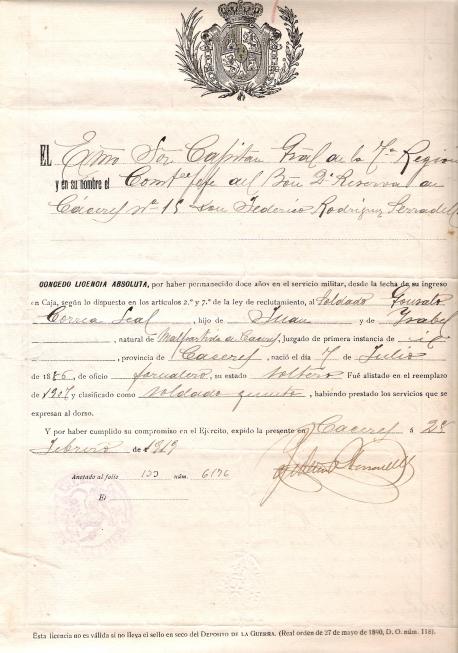 EL Exmo Sor Capitan Gral de la 7ª Region
y en su nombre el Comte Jefe del Bon 2ª Reserva de
Cáceres nº 15 Don Federico Rodriguez Serradell
CONCEDO LICENCIA ABSOLUTA, por haber permanecido doce años en el servicio militar, desde la fecha de su ingreso
en Caja, según lo dispuesto en los artículos 2.º y 7.º de la ley de reclutamiento, al Soldado Gonzalo
Correa Leal, hijo de Juan y de Ysabel
, natural de Malpartida de Caceres, Juzgado de primera instancia de id
, provincia de Caceres, nació el día 7 de Julio
de 1886, de oficio jornalero, su estado soltero Fué alistado en el reemplazo
de 1907 y clasificado como soldado, habiendo prestado los servicios que se
expresan al dorso.
Y por haber cumplido su compromiso en el Ejército, expido la presente en Caceres á 28
Febrero de 1919
Anotado al folio 133 núm. 6176
El
Esta licencia no es válida si no lleva el sello en seco del DEPÓSITO DE LA GUERRA. (Real orden de 27 de mayo de 1890, D. O. núm. 118).